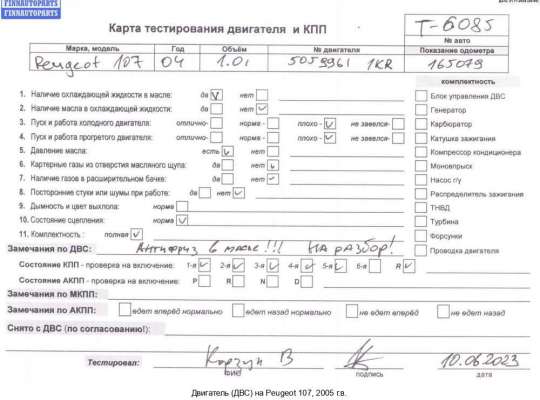 FINNAUTOPARTS
FINNAUTOPARTS
Карта тестирования двигателя и КПП
T-6085
№ авто
Марка, модель Год Объём № двигателя Показание одометра
Peugeot 107 04 1.0i 5059961 1KR 165079
комплектность
1. Наличие охлаждающей жидкости в масле: да нет
Блок управления ДВС
2. Наличие масла в охлаждающей жидкости: да нет
Генератор
3. Пуск и работа холодного двигателя: отлично- норма - плохо- не завелся-
Карбюратор
4. Пуск и работа прогретого двигателя: отлично- норма- плохо - не завелся-
Катушка зажигания
5. Давление масла: есть нет
Компрессор кондиционера
6. Картерные газы из отверстия масляного щупа: да нет
Моновпрыск
7. Наличие газов в расширительном бачке: да нет
Насос г/у
8. Посторонние стуки или шумы при работе: да нет
Распределитель зажигания
9. Дымность и цвет выхлопа: норма
ТНВД
10. Состояние сцепления: норма
Турбина
11. Комплектность : полная
Форсунки
Замечания по ДВС: Антифриз в масле!!! НА РАЗБОР!
Проводка двигателя
Состояние КПП - проверка на включение: 1-я 2-я 3-я 4-я 5-я 6-я R
Состояние АКПП - проверка на включение: P R N D
Замечания по МКПП:
Замечания по АКПП: едет вперёд нормально едет назад нормально не едет вперёд не едет назад
Снято с ДВС (по согласованию!):
Тестировал: Корзун В 10.06.2023
ФИО подпись дата
Двигатель (ДВС) на Peugeot 107, 2005 г.в.